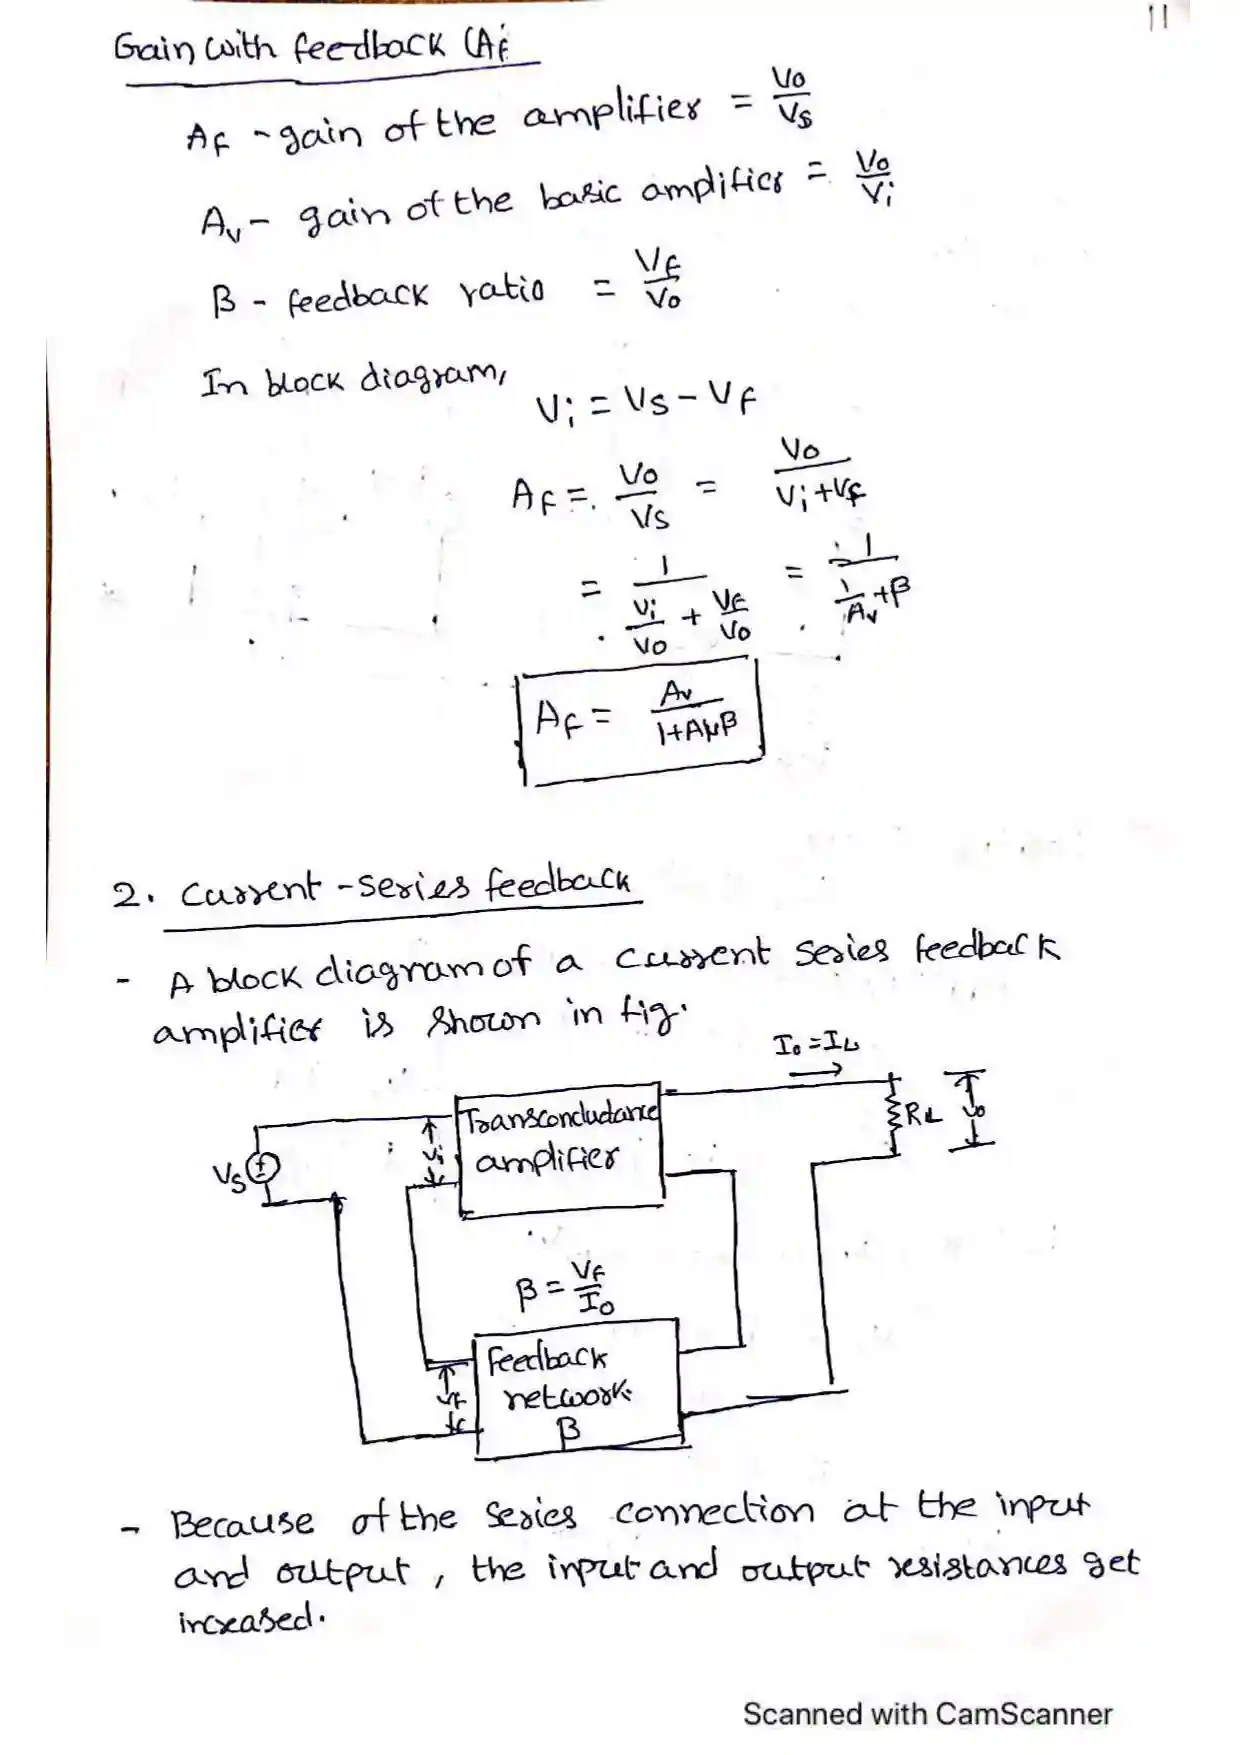 11
Gain with feedback (Af
Af - gain of the amplifier = Vo/Vs
Av - gain of the basic amplifier = Vo/Vi
β - feedback ratio = Vf/Vo
In block diagram,
Vi = Vs - Vf
Af = Vo/Vs = Vo/(Vi+Vf)
= 1/(Vi/Vo + Vf/Vo) = 1/(1/Av + β)
Af = Av/(1+Avβ)
2. Current - series feedback
- A block diagram of a current series feedback
amplifier is shown in fig.
Io = IL
Transconductance
amplifier
Vs
Vi
RL
Vo
β = Vf/Io
Feedback
network
β
Vf
- Because of the series connection at the input
and output, the input and output resistances get
increased.
Scanned with CamScanner